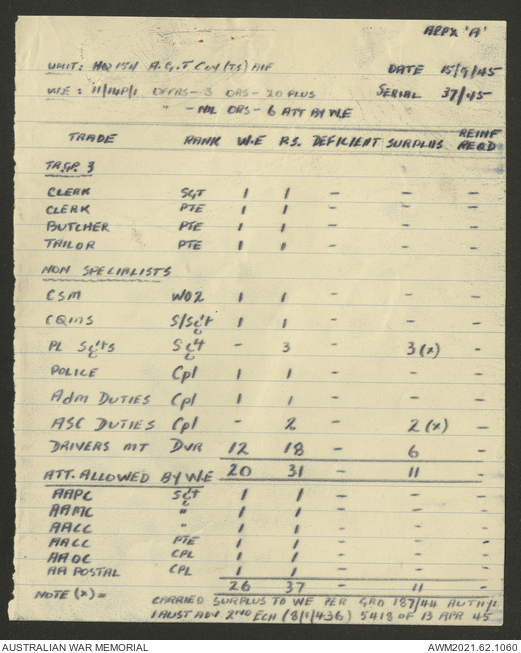 APPX 'A'
UNIT: HQ 154 A.G.T COY (TS) AIF DATE 15/9/45
W.E: 11/141P/1 OFFRS - 3 ORS - 20 PLUS SERIAL 37/45
" - NIL ORS - 6 ATT BY W.E
TRADE RANK W.E P.S. DEFICIENT SURPLUS REINF REQD
TRGP. 3
CLERK SGT 1 1 - - -
CLERK PTE 1 1 - - -
BUTCHER PTE 1 1 - - -
TAILOR PTE 1 1 - - -
NON SPECIALISTS
CSM WO2 1 1 - - -
CQMS S/Sgt 1 1 - - -
PL Sgts Sgt - 3 3 (x) -
POLICE Cpl 1 1 - - -
Adm DUTIES Cpl 1 1 - - -
ASC DUTIES Cpl - 2 - 2 (x) -
DRIVERS MT DVR 12 18 - 6 -
20 31 - 11 -
ATT. ALLOWED BY W.E
AAPC Sgt 1 1 - - -
AAMC " 1 1 - - -
AACC " 1 1 - - -
AACC PTE 1 1 - - -
AAOC CPL 1 1 - - -
AA POSTAL CPL 1 1 - - -
26 37 - 11 -
NOTE (x) = CARRIED SURPLUS TO WE PER GRO 187/44 AUTHY:
1 AUST ADV 2ND ECH (8/1/436) 5418 OF 13 APR 45
AUSTRALIAN WAR MEMORIAL AWM2021.62.1060